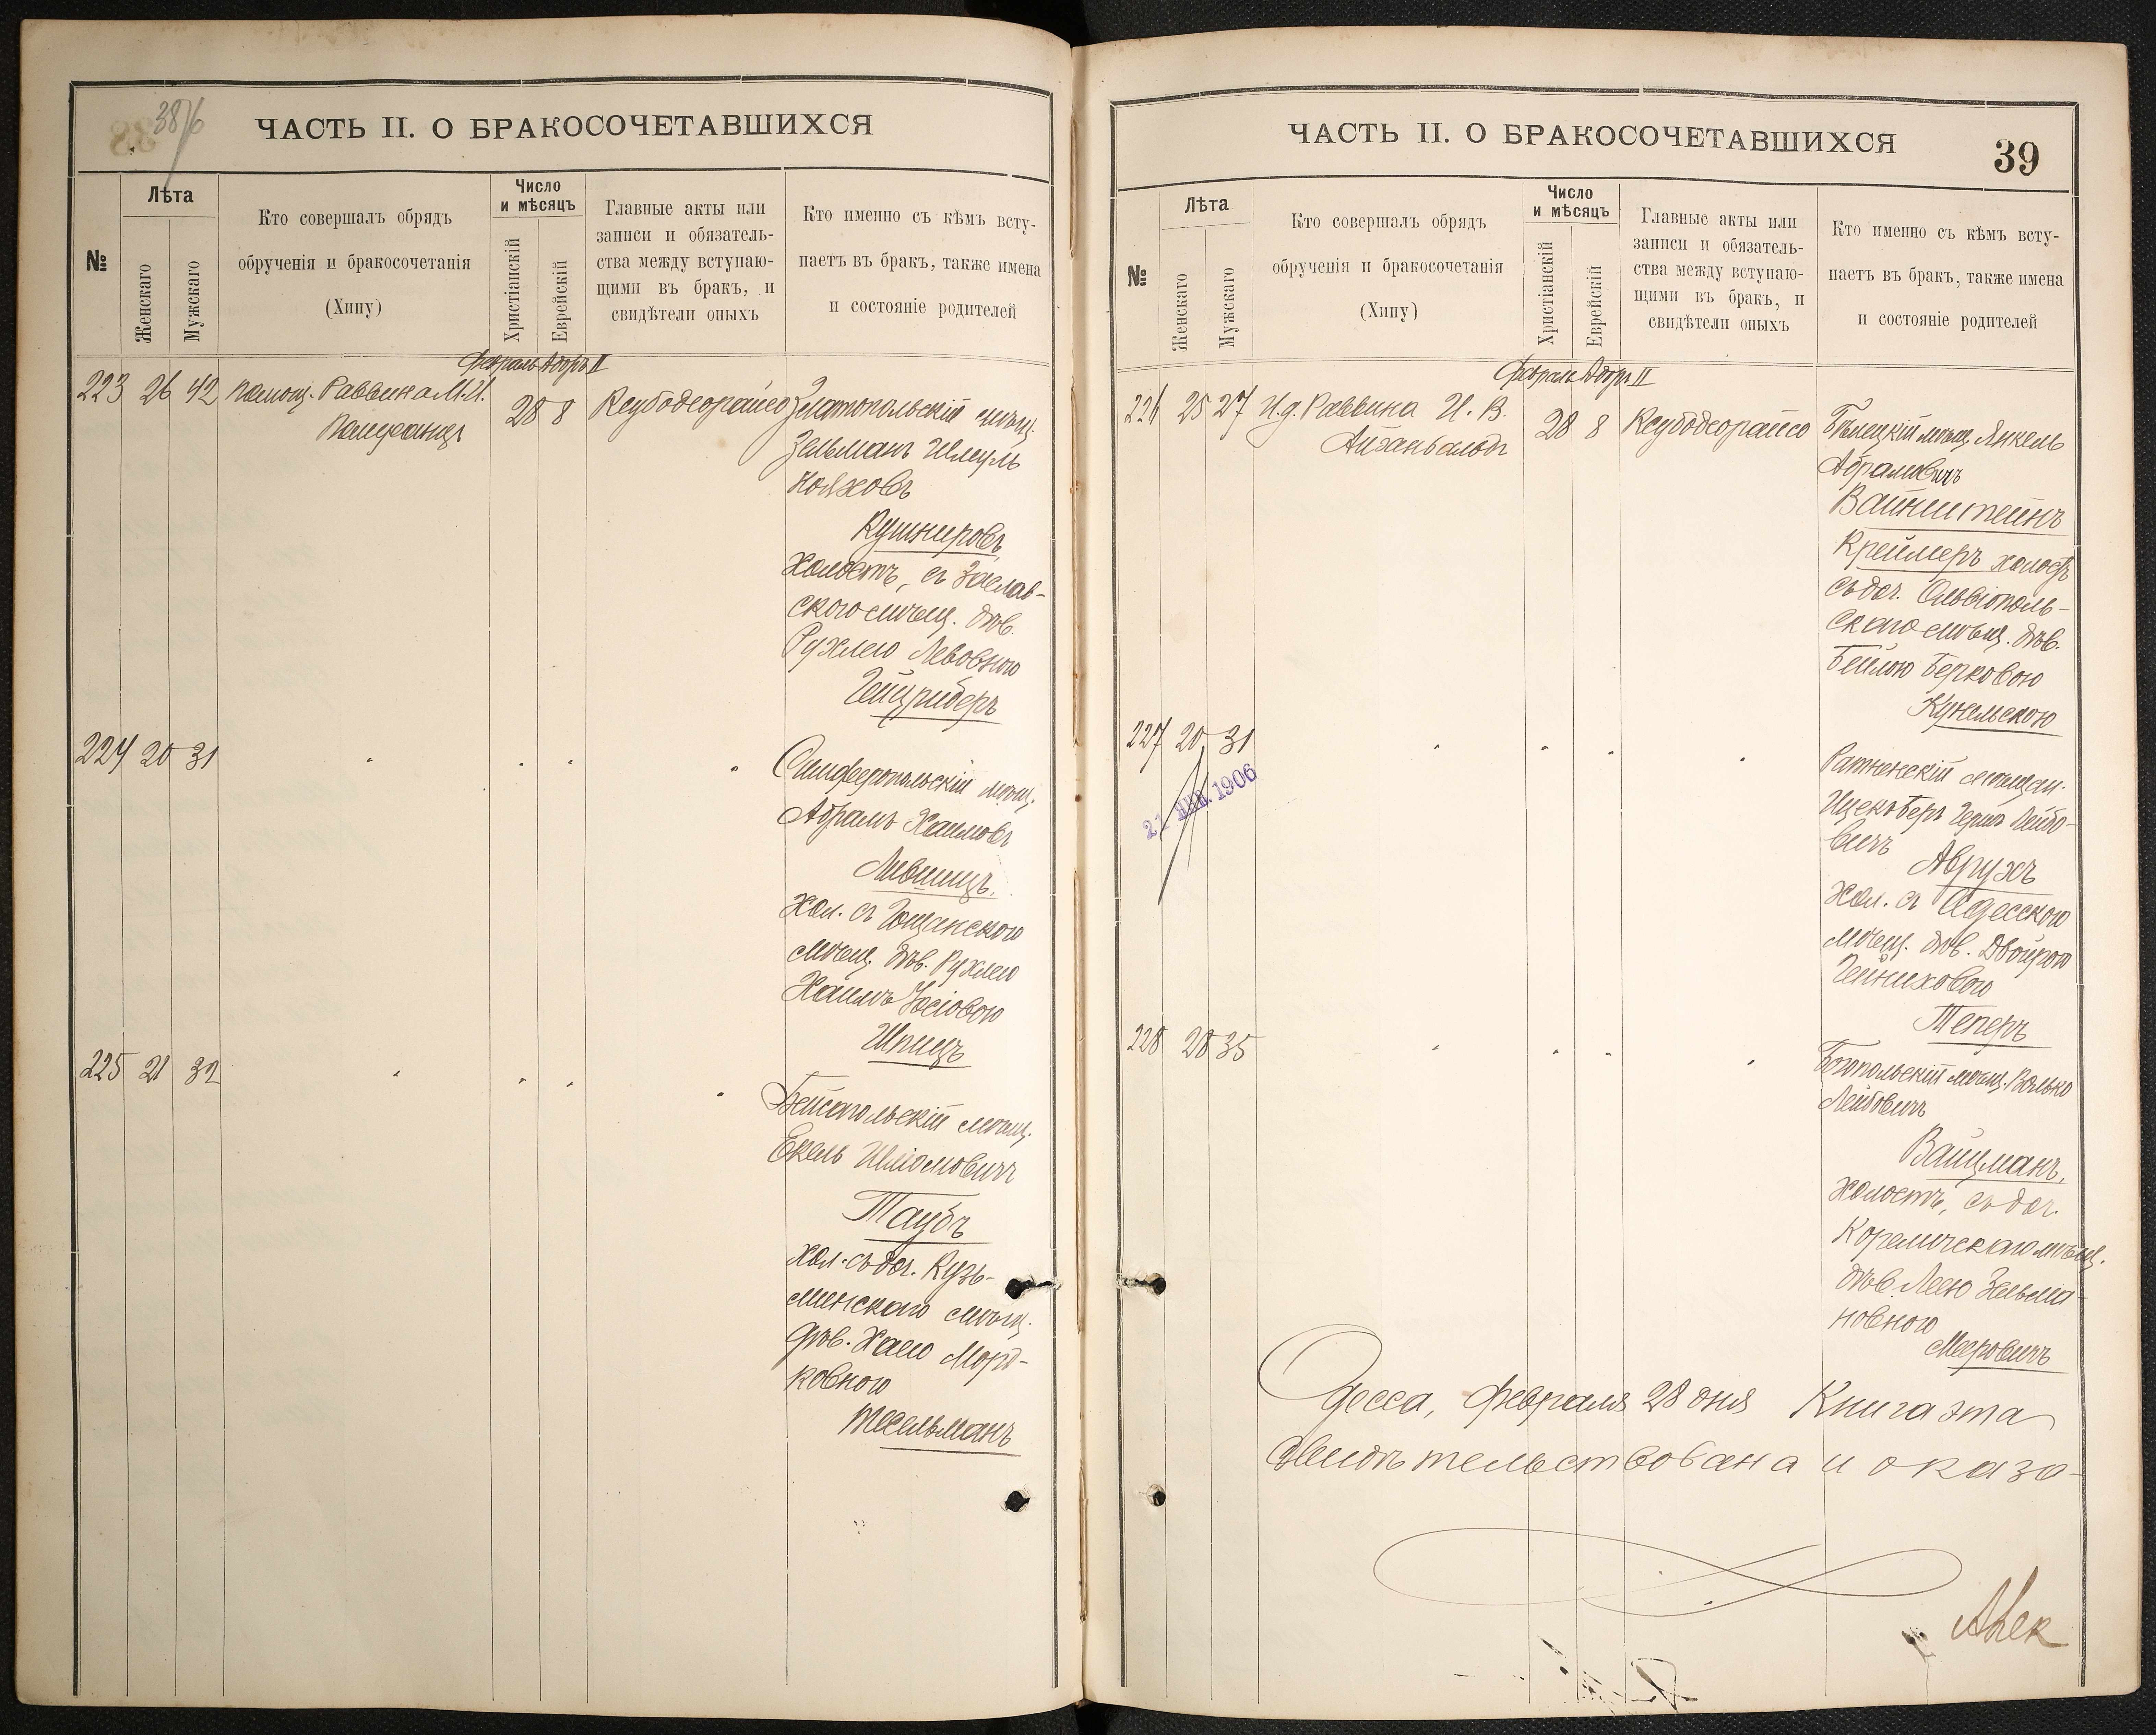 38/6
ЧАСТЬ II. О БРАКОСОЧЕТАВШИХСЯ
№
Лѣта
Женскаго
Мужскаго
Кто совершалъ обрядъ
обрученія и бракосочетанія
(Хипу)
Число
и мѣсяцъ
Христіанскій
Еврейскій
Главные акты или
записи и обязатель-
ства между вступаю-
щими въ бракъ, и
свидѣтели оныхъ
Кто именно съ кѣмъ всту-
паетъ въ бракъ, также имена
и состояніе родителей
Февраль Адоръ II
223 26 42 помощ. Раввина М.И.
28 8 Кеубодеорайсо
Златопольскій мѣщ.
Зельманъ Шмуль
Нояховъ
Кушнировъ
Холостъ, съ Заслав-
скою мѣщ. дѣв.
Рухлею Левовною
Гейцриберъ
224 20 31
Симферопольскій мѣщ.
Абрамъ Хаимовъ
Лившицъ
хол. съ Гощанскою
мѣщ. дѣв. Рухлею
Хаимъ Іосіовою
Шпицъ
225 21 32
мѣщ.
Екель Шліомовичъ
Таубъ
хол. съ доч. Кузь-
минскаго мѣщ.
дѣв. Хаею Морд-
ковною
Тесельманъ
ЧАСТЬ II. О БРАКОСОЧЕТАВШИХСЯ
39
№
Лѣта
Женскаго
Мужскаго
Кто совершалъ обрядъ
обрученія и бракосочетанія
(Хипу)
Число
и мѣсяцъ
Христіанскій
Еврейскій
Главные акты или
записи и обязатель-
ства между вступаю-
щими въ бракъ, и
свидѣтели оныхъ
Кто именно съ кѣмъ всту-
паетъ въ бракъ, также имена
и состояніе родителей
Февраль Адоръ II
226 25 27 И.д. Раввина И. В.
Айзенвальдъ
28 8 Кеубодеорайсо
Бѣлецкій мѣщ. Янкель
Абрамовичъ
Вайнштейнъ
Креймеръ холостъ
съ доч. Ольвіополь-
скаго мѣщ. дѣв.
Бейлою Берковою
Кунельскою
227 20 31
21 1906
Ратненскій мѣщан.
Ицекъ Беръ Герш Лейбо-
вичъ
Аврухъ
хол. съ Одесскою
мѣщ. дѣв. Двойрою
Генниховою
Теперъ
228 28 35
Богопольскій мѣщ. Волько
Лейбовичъ
Вайцманъ,
холостъ, съ доч.
Кореличскаго мѣщ.
дѣв. Леею Зельма-
новною
Мееровичъ
Одесса, февраля 28 дня Книга эта
свидѣтельствована и оказа-